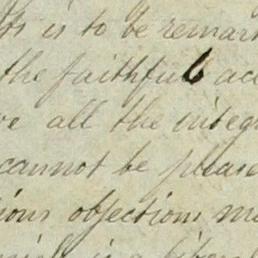 is to be remark
the faithful acc
all the integr
cannot be please
ious objections m
is a